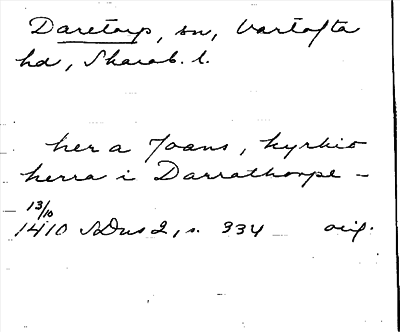 Daretorp, sn, Vartofta
hd, Skarab. l.
her a Joans, kyrkio
herra i Darrathorpe –
13/10
1410 SDns 2, s. 334 orig.